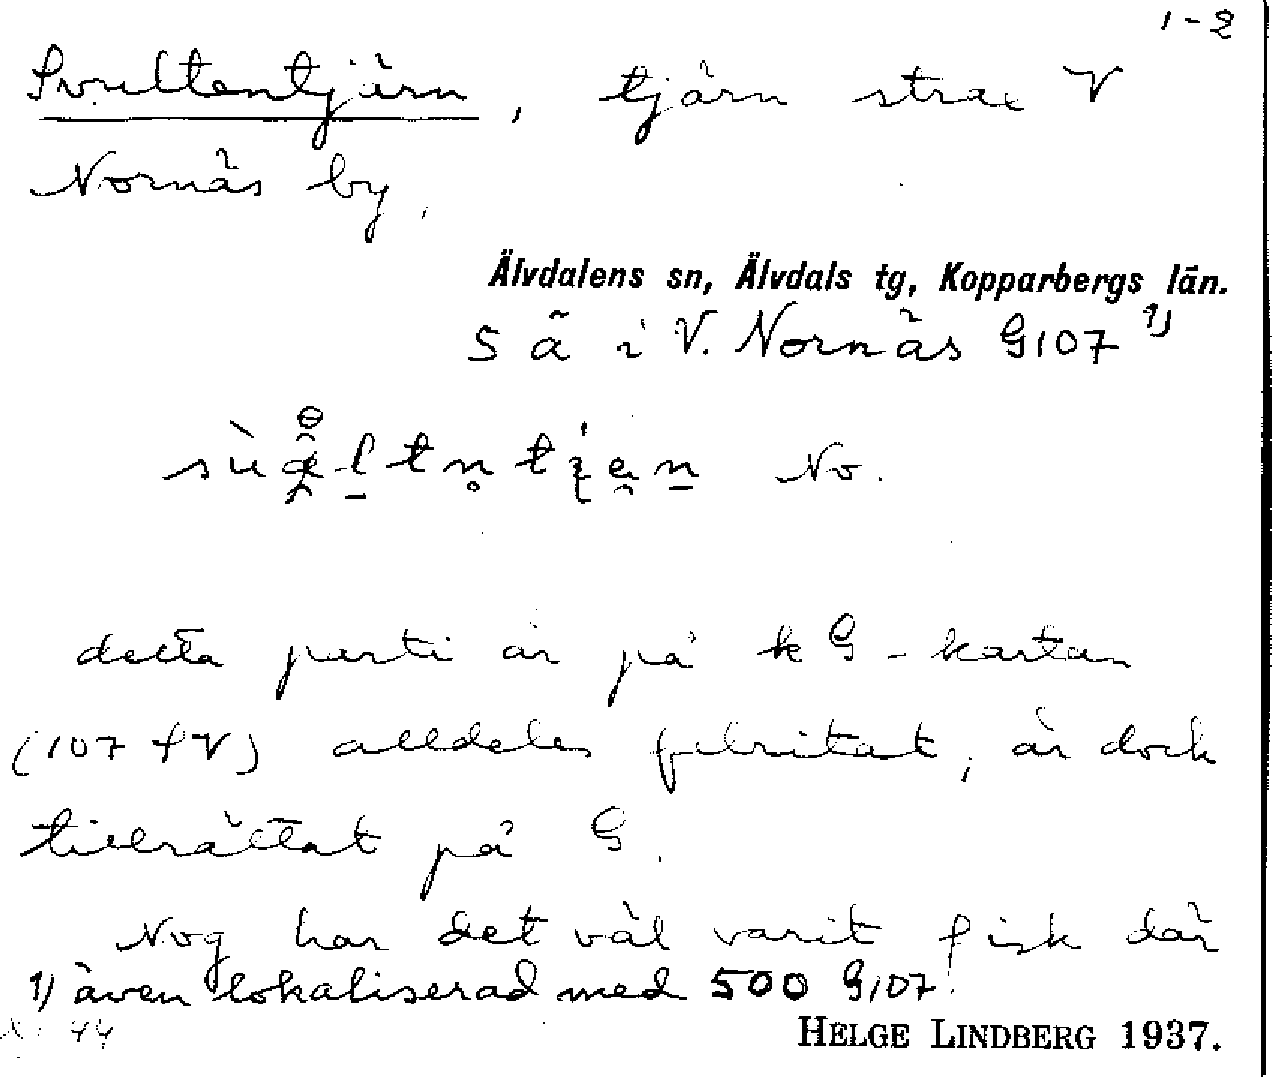 1-2
Svultentjärn, tjärn strax V
Nornäs by.
Älvdalens sn, Älvdals tg, Kopparbergs län.
S ä i V. Nornäs G107 1)
No.
detta parti är på k G-kartan
(107 f V) alldeles felritat, är dock
tillrättat på G.
Nog har det väl varit fisk där
1) även lokaliserad med 500 G107.
44
HELGE LINDBERG 1937.